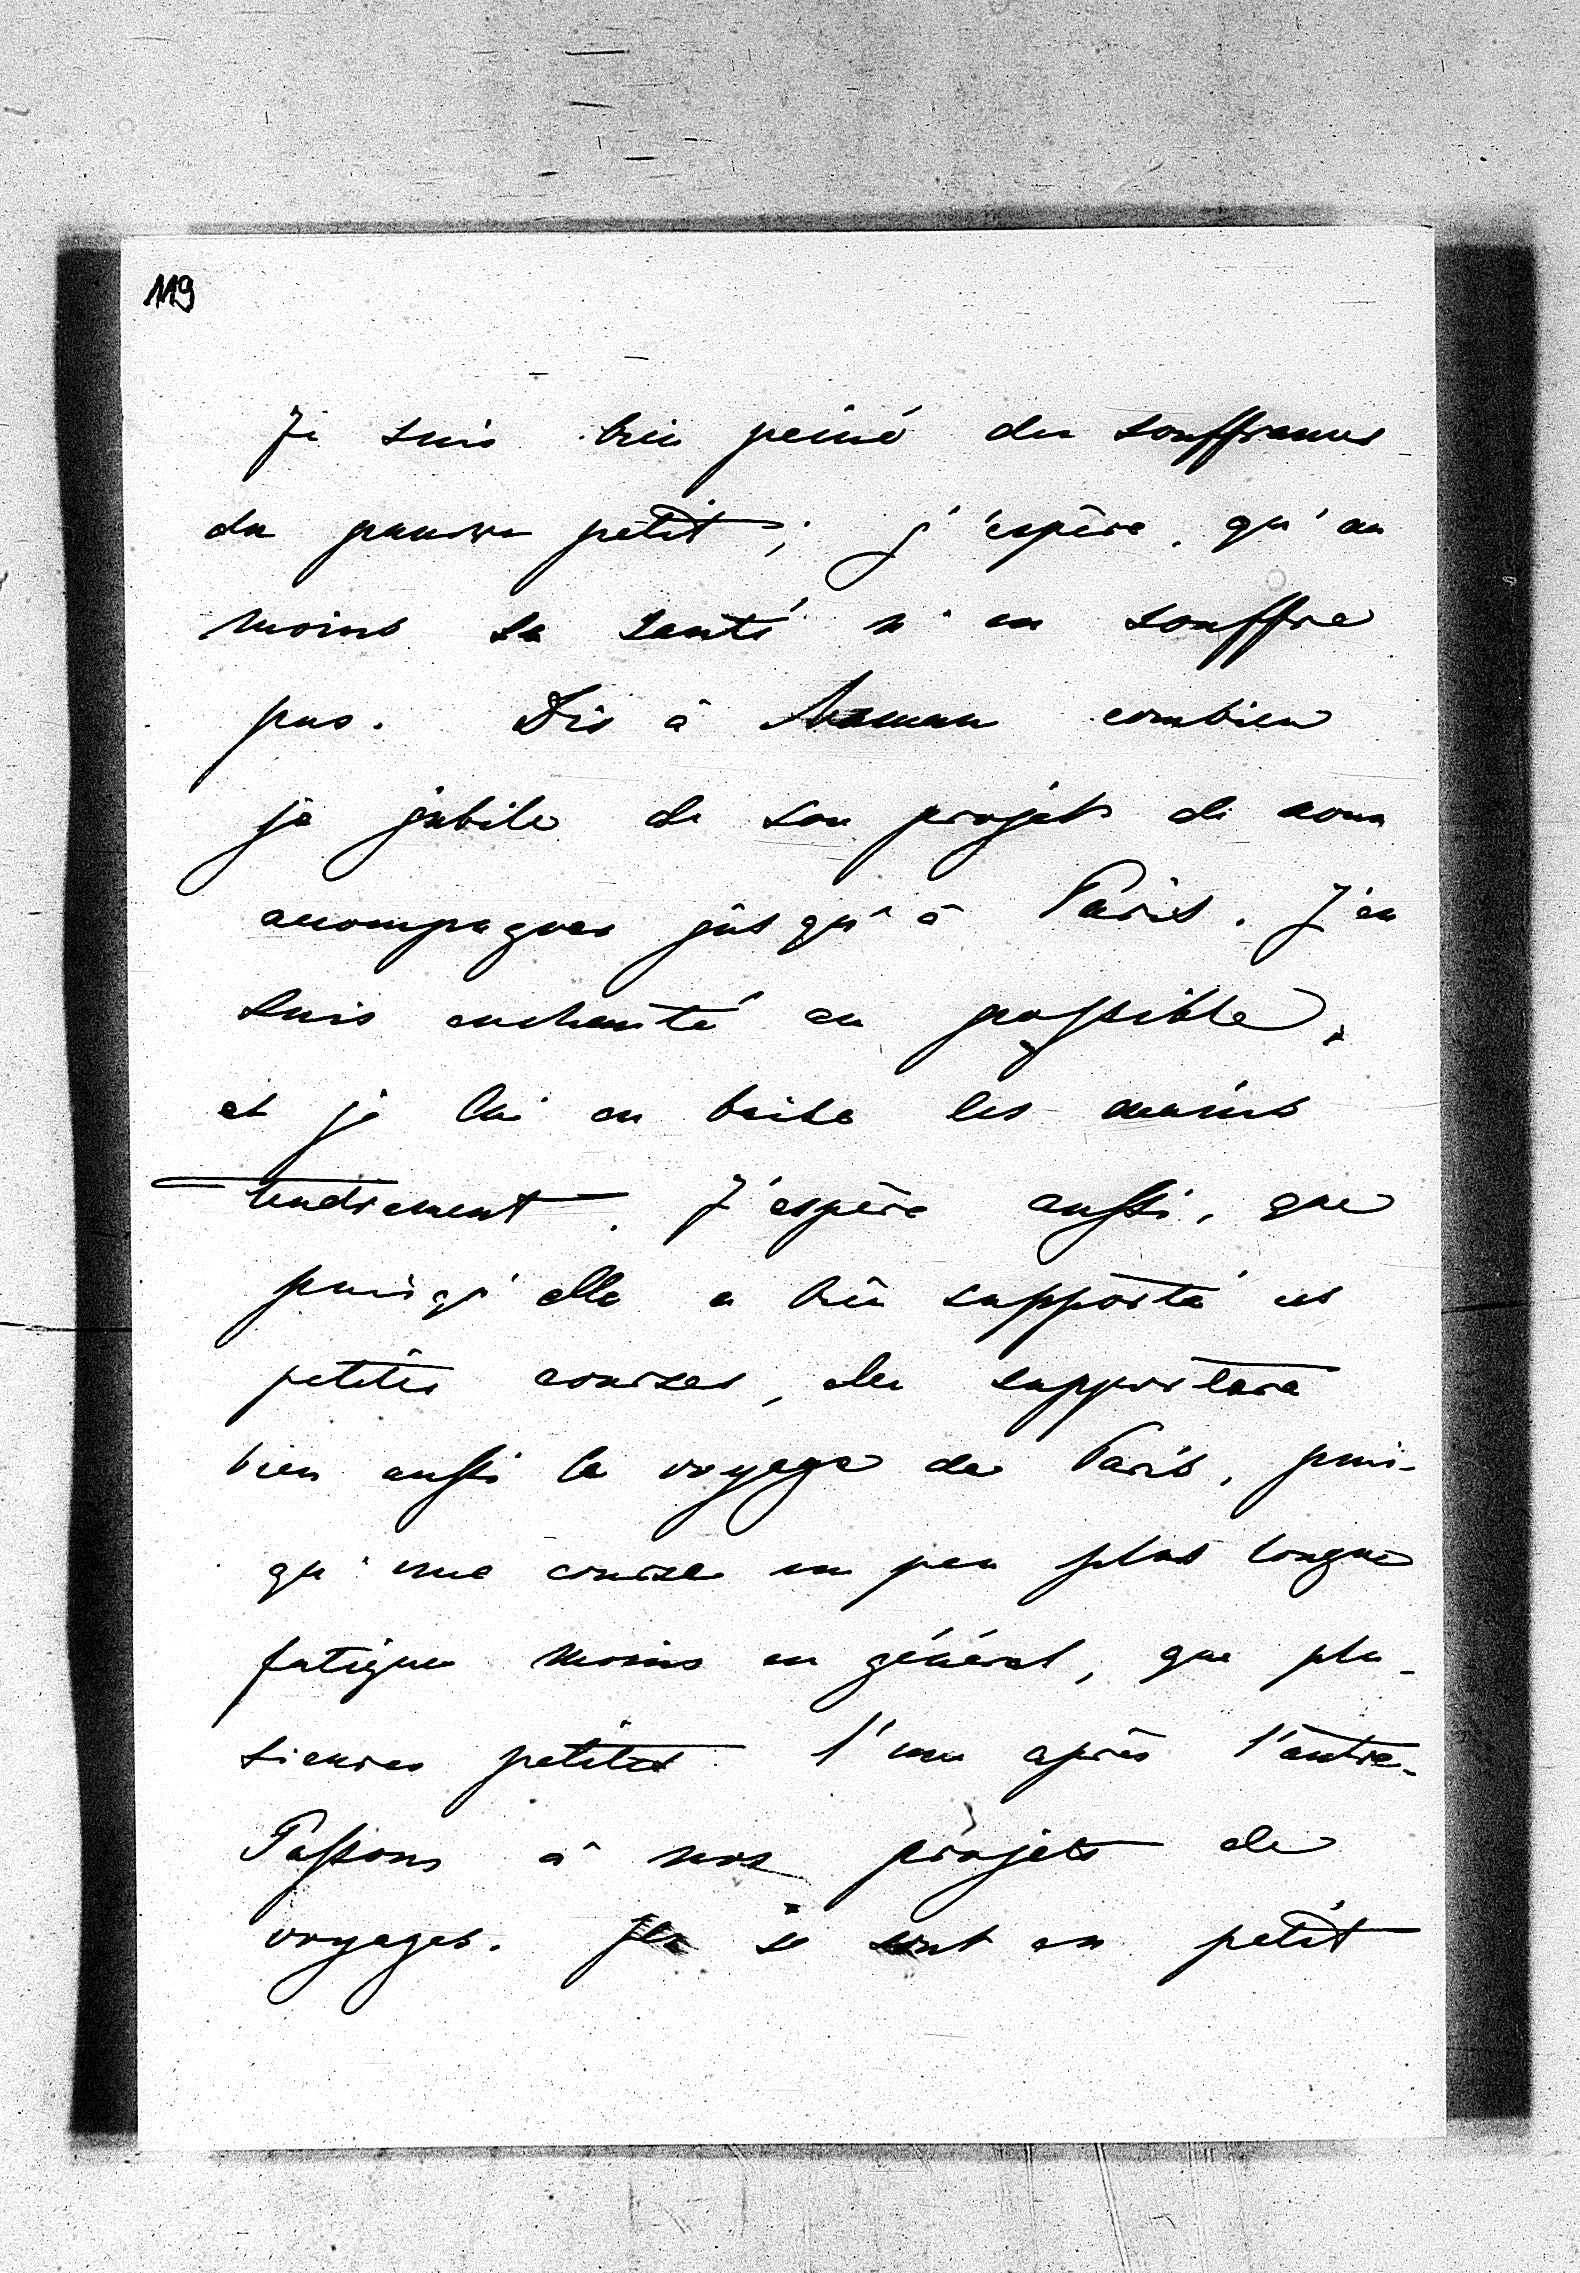 119
Je suis bien peiné des souffrances
du pauvre petit; j'espère, qu'au
moins sa santé n'en souffre
pas. Dis à Maman combien
je jubile de son projets de nous
accompagner jusqu'à Paris. J'en
suis enchanté au possible,
et je lui en baise les mains
tendrement. J'espère aussi, que
puisqu'elle a bien supporté ces
petites courses, elle supportera
bien aussi le voyage de Paris, puis-
qu'une course un peu plus longue
fatigue moins en général, que plu-
sieures petites l'une après l'autre.
Passons à nos projets de
voyages. Ils se sont un petit